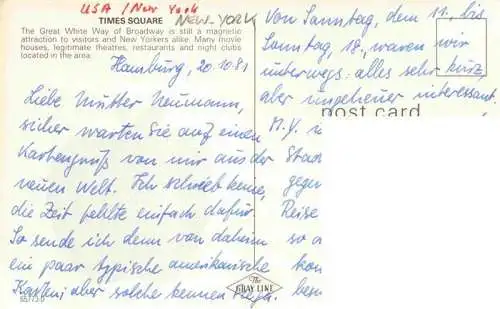 USA / New York
NEW-YORK
TIMES SQUARE
The Great White Way of Broadway is still a magnetic
attraction to visitors and New Yorkers alike. Many movie
houses, legitimate theatres, restaurants and night clubs
located in the area.
Hamburg, 20.10.81
Liebe Mutter Neumann,
sicher warten Sie auf einen
Kartengruß von mir aus der
neuen Welt. Ich schrieb keine,
die Zeit fehlte einfach dafür.
So sende ich denn von daheim
ein paar typische amerikanische
Karten; aber solche kennen
Von Sonntag, dem 11., bis
Sonntag, 18., waren wir
unterwegs: alles sehr kurz,
aber ungeheuer interessant.
post card
N.Y.
Stad
gegen
Reise
so a
kon
besu
The
GRAY LINE